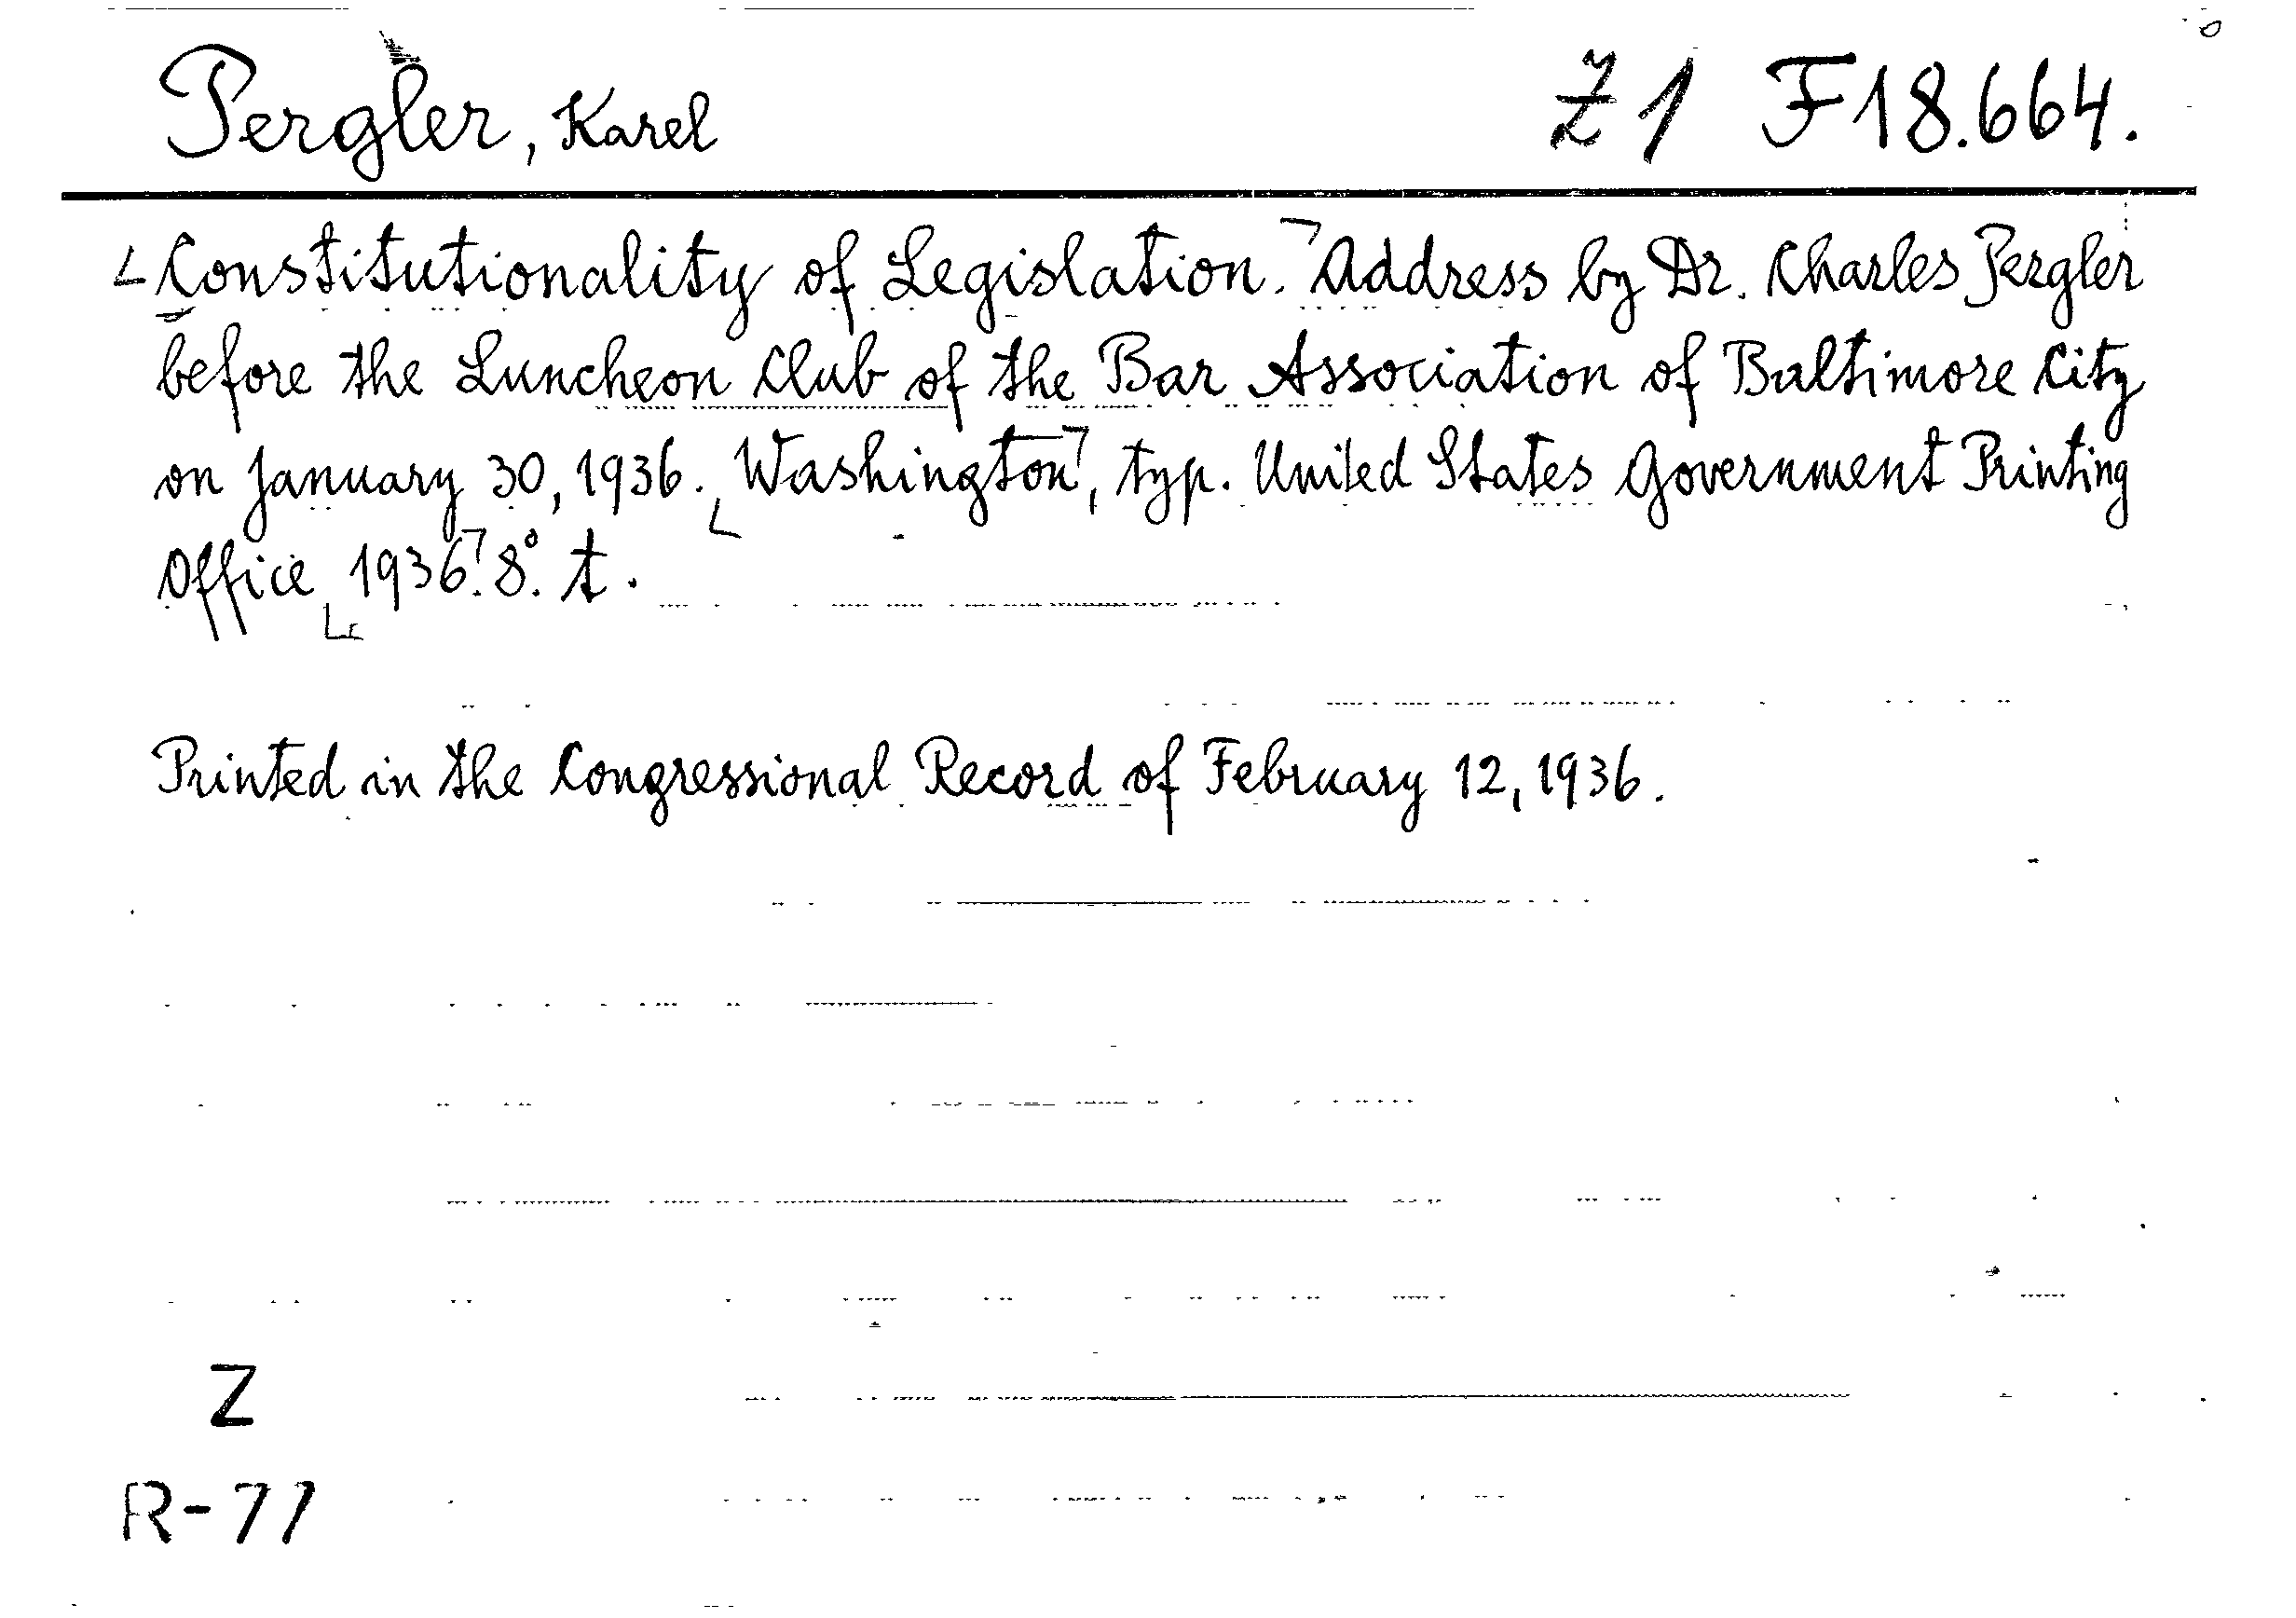 Pergler, Karel Z1 F18.664.
Constitutionality of Legislation. Address by Dr. Charles Pergler
before the Luncheon Club of the Bar Association of Baltimore City
on January 30, 1936. Washington, typ. United States Government Printing
Office 1936. 8°. t.
Printed in the Congressional Record of February 12, 1936.
Z
R-77